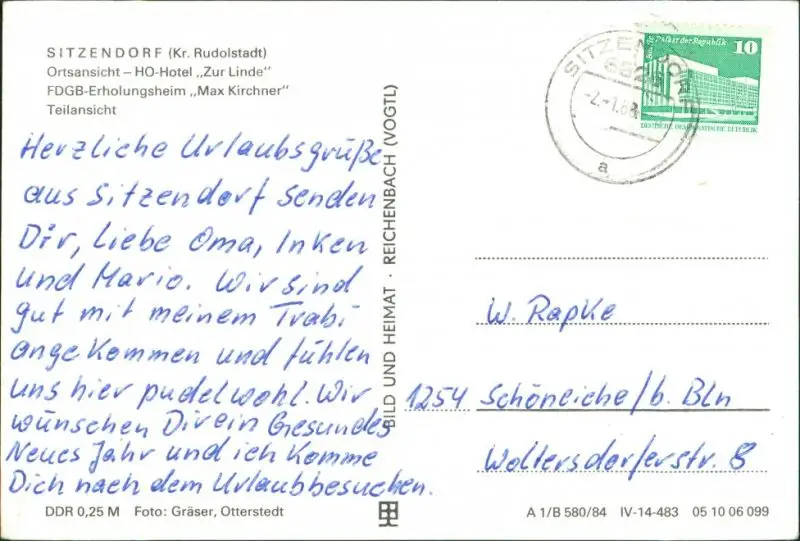 SITZENDORF (Kr. Rudolstadt)
Ortsansicht – HO-Hotel „Zur Linde"
FDGB-Erholungsheim „Max Kirchner"
Teilansicht
Herzliche Urlaubsgrüße
aus Sitzendorf senden
Dir, liebe Oma, Inken
und Mario. Wir sind
gut mit meinem Trabi
angekommen und fühlen
uns hier pudelwohl. Wir
wünschen Dir ein Gesundes
Neues Jahr und ich komme
Dich nach dem Urlaub besuchen.
DDR 0,25 M Foto: Gräser, Otterstedt
BILD UND HEIMAT · REICHENBACH (VOGTL)
SITZENDORF
a
der Republik
10
DEUTSCHE DEMOKRATISCHE REPUBLIK
W. Rapke
1254 Schöneiche/b. Bln
Woltersdorferstr. 8
A 1/B 580/84 IV-14-483 05 10 06 099